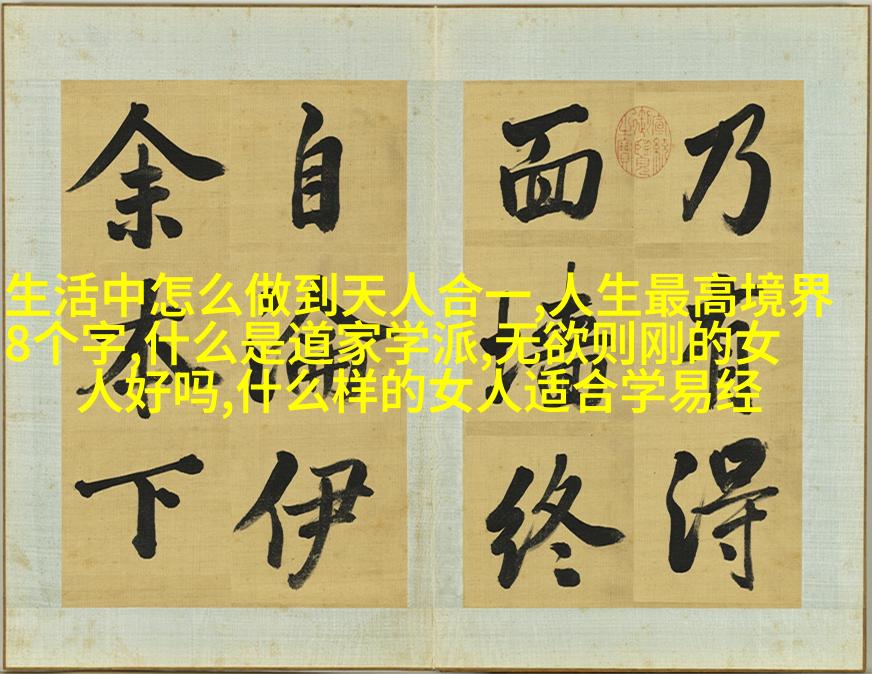 乃有得
面墻終
自淪伊
余本下
生活中怎么做到天人合一,人生最高境界
8个字,什么是道家学派,无欲则刚的女
人好吗,什么样的女人适合学易经